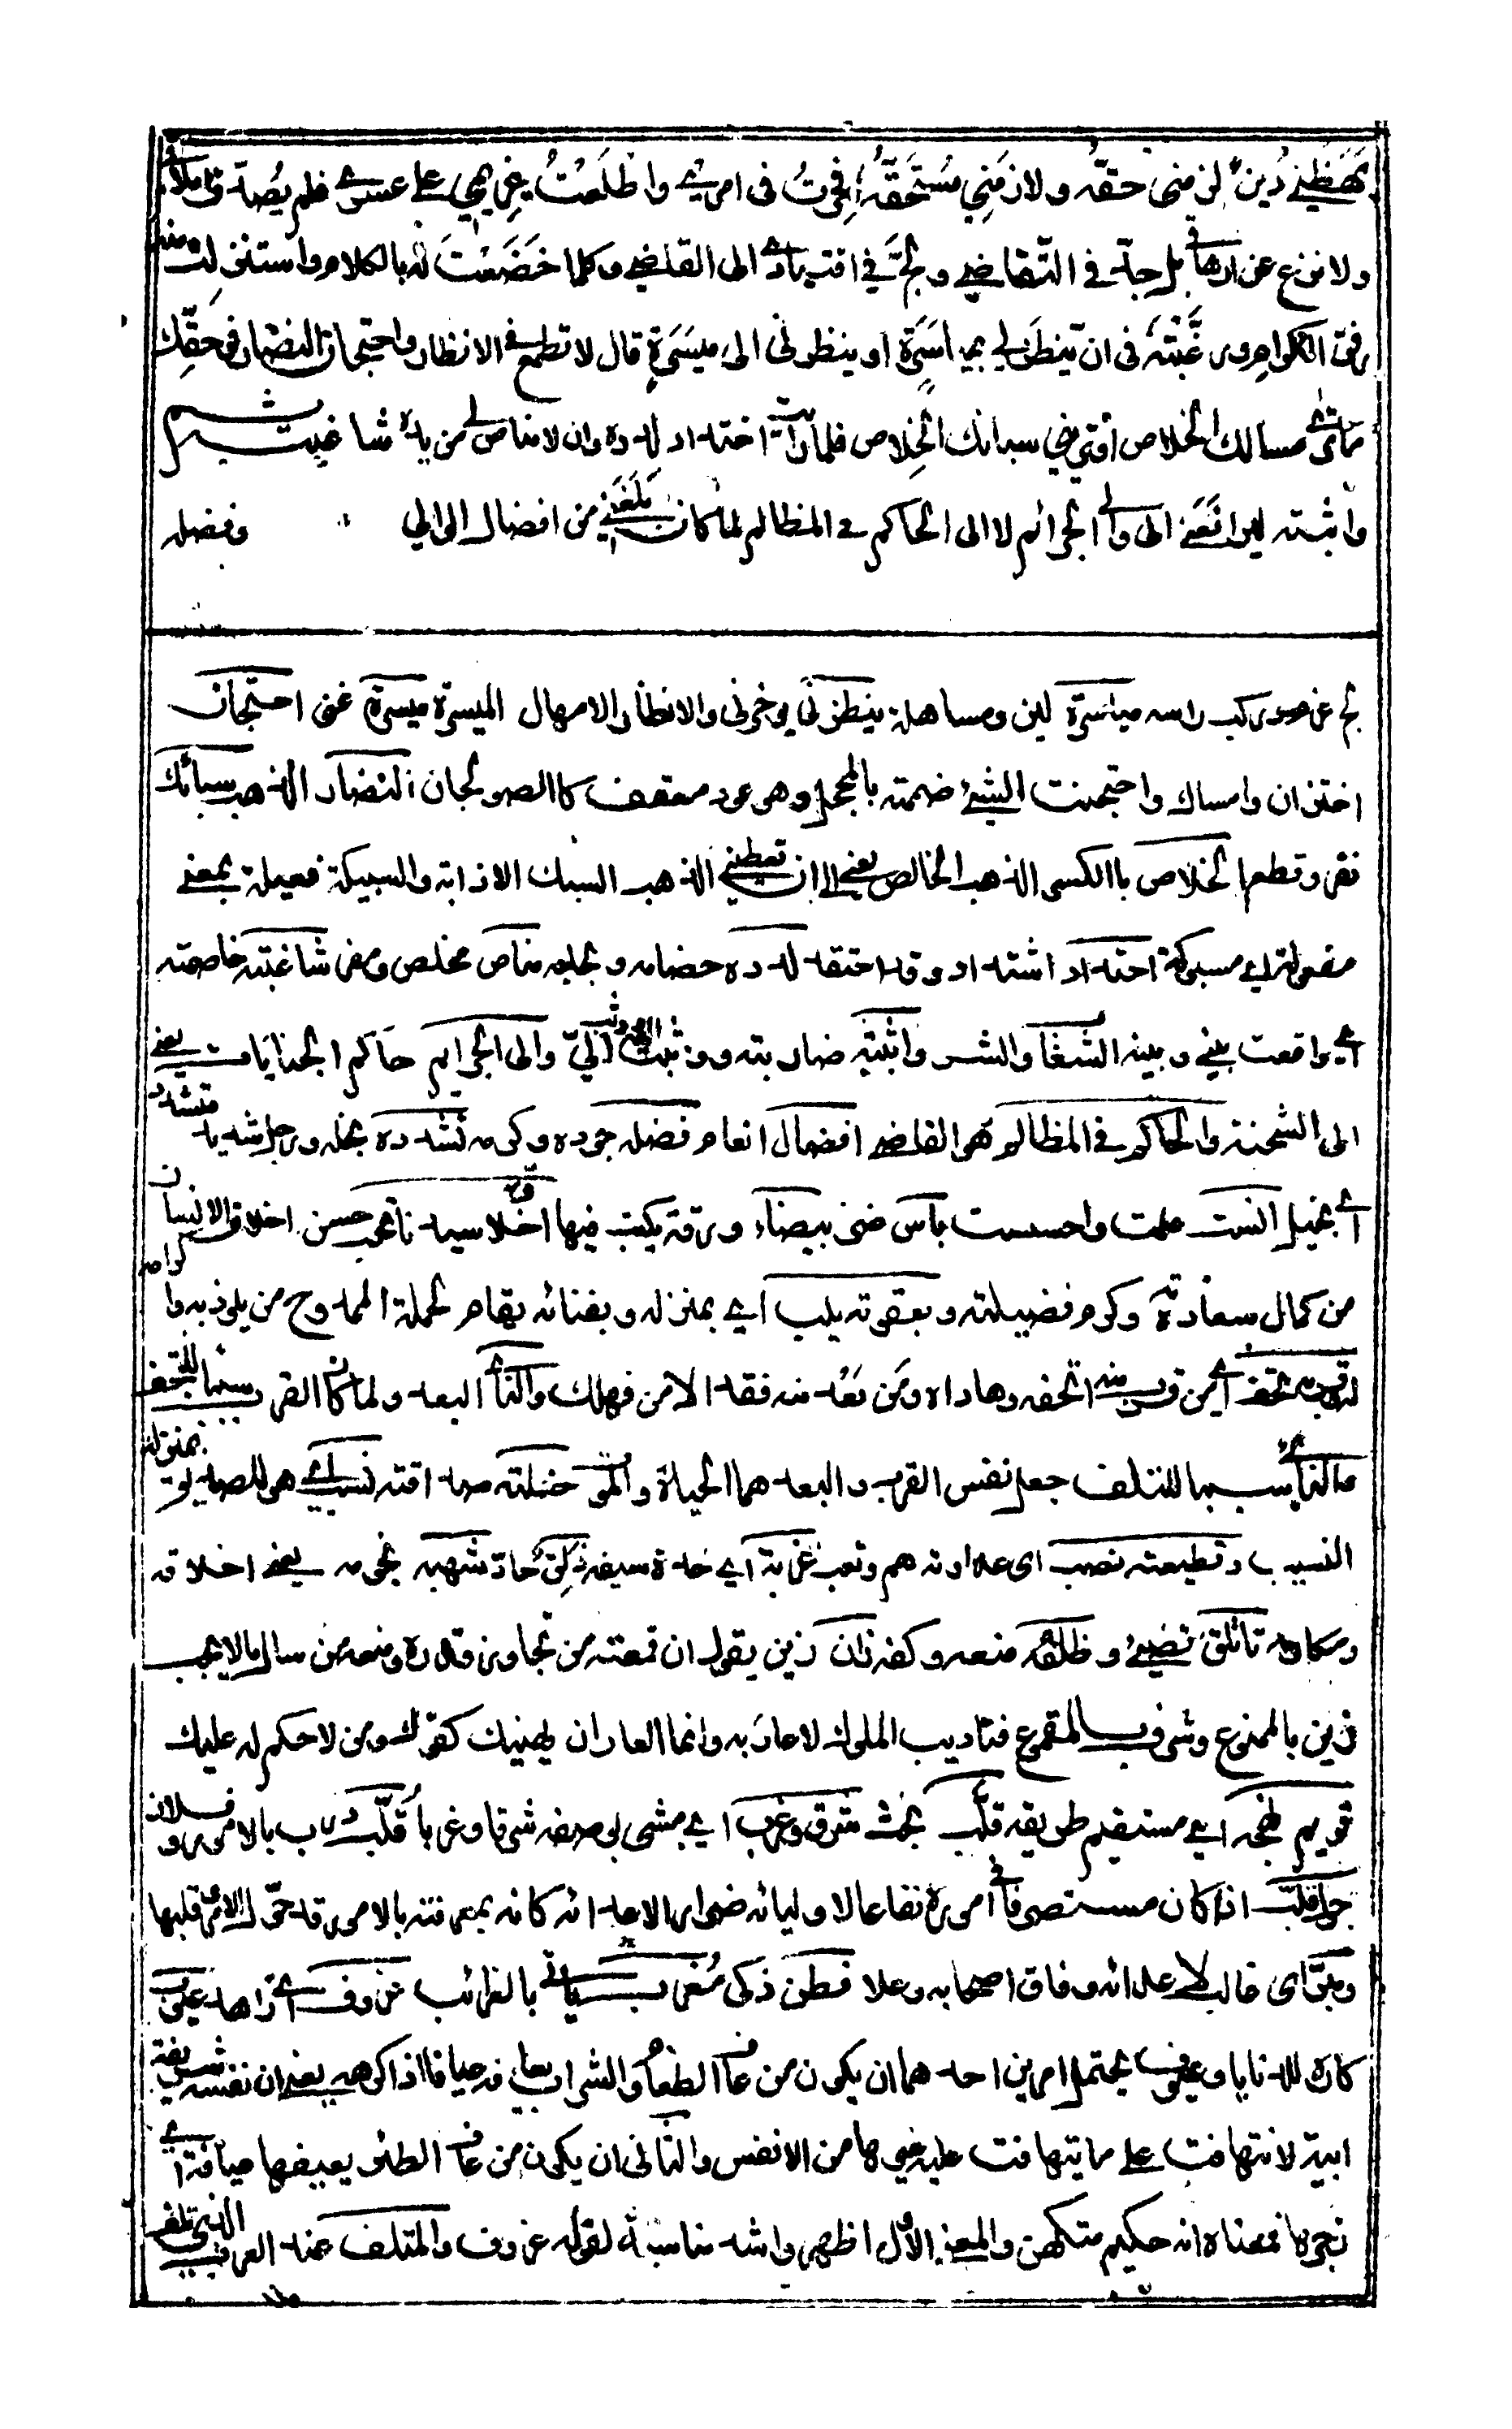 بهظني دين لزمني حقه ولازمني مستحقه فحرت في امري واطلعت غريمي على عسري فلم يصدق املاقي
ولا نزع عن ارهاقي بل جد في التقاضي ولج في اقتيادي الى القاضي وكلما خضعت له بالكلام واستنزلت منه
رفق الكرام ورغبته في ان ينظر لي بمياسرة او ينظرني الى ميسرة قال لا تطمع في الانظار واحتجان النضار فوحقك
ما ترى مسالك الخلاص او تريني سبائك الخلاص فلما رايت احتداد لدده وان لا مناص لي من يده شاغبته ثم
واثبته ليرافعني الى والي الجرائم لا الى الحاكم في المظالم لما كان بلغني من افضال الوالي وفضله
لج غريمي ركب راسه مياسرة لين ومساهلة ينظرني يوخرني والانظار الامهال الميسرة ميسرة غنى احتجان
اختزان وامساك واحتجنت الشئ ضممته بالمحجن وهو عود معقف كالصولجان النضار الذهب سبائك
نقر وقطع الخلاص باالكسر الذهب الخالص يعني الى ان تعطيني الذهب السبك الاذابة والسبيكة فعيلة بمعنى
مفعولة اي مسبوكة احتداد اشتداد وقد احتد لدده خصامه و مناص مخلص ومفر شاغبته خاصمته
اي واقعت بيني وبينه الشغا والشر واثبته ضاربته ووثبت الوالي والي الجرايم حاكم الجنايات يعني
الى الشحنة والحاكم في المظالم هو القاضي افضال انعام فضله جوده وكرمه تشدده بخله ورجل شديد متشدد
اي بخيل انست علمت واحسست باس ضر بيضاء ورقة يكتب فيها اخلاق سيدنا حسن اخلاق الانسان
من كمال سعادته وكرم فضيلته وبعقوته يلب اي بمنزله وبفنائه يقام لحملة الممدوح من يلوذ به وا
لقربه تحف اي من قرب منه اتحفه وهاداه ومن بعد منه فقد الامن فهلك والناي البعد ولما كان القرب سببا للتحف
والناي سببا للتلف جعل نفس القرب والبعد هما الحياة والموت خلته صداقته نسب اي هو للصديق بمنزلة
النسيب وقطيعته نصب اي عداوته هم وتعب غربه اي حدة سيفه ذلق حاد شهبه نجومه يعني اخلاقه
ومكارمه تاتلق تضئ وظلفه منعه وكفه زان زين يقول ان قمعته من تجاوز قدره ومنعه من سال مالا يجب
زين بالممنوع وشرف بالمقموع فتاديب الملوك لا عار به وانما العار ان يهينك كفوك ومن لا حكم له عليك
قويم نهجه اي مستقيم طريقه قلب بحث شرق وغرب اي مشى بوصفه شرقا وغربا قلب درب بالامور وفلان
حول قلب اذا كان مستصرفا في اموره نفاعا لاوليائه ضرارا لاعدائه كانه بمعرفته بالامور قد حول الامر قلبها
وسبق اي غالب لاعدائه وفاق اصحابه وعلا فطن ذكي مغرب ياتي بالغرائب عزوف اي زاهد عيوف
كاره للدنايا وعيوف يحتمل امرين احدهما ان يكون من عاف الطعام والشراب يعافه عيافا اذا كرهه يعني ان نفسه شريفة
ابية لا تتهافت على ما تتهافت عليه غيرها من الانفس والثاني ان يكون من عاف الطير يعيفها عيافة اي
زجرها فمعناه انه حكيم متكهن والمعنى الاول اظهر واشد مناسبة لقوله عزوف والمتلف عند العرب